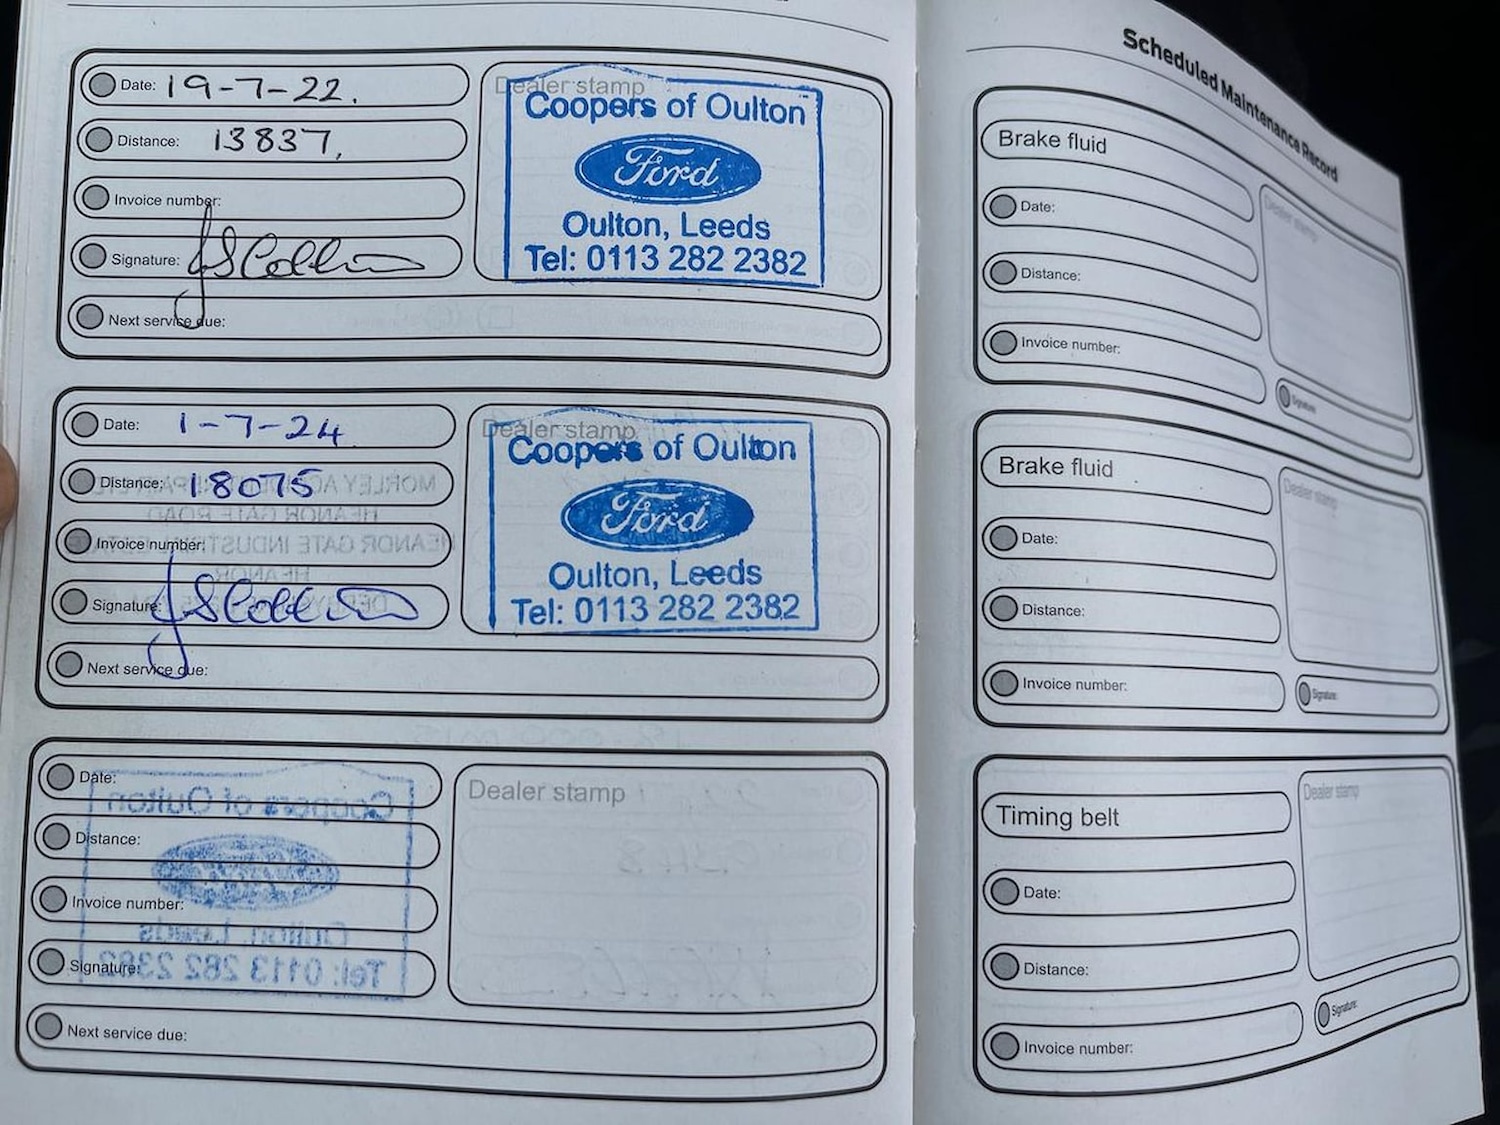 Date: 19-7-22.
Distance: 13837,
Invoice number:
Signature:
Next service due:
Dealer stamp
Coopers of Oulton
Ford
Oulton, Leeds
Tel: 0113 282 2382
Date: 1-7-24
Distance: 18075
Invoice number:
Signature:
Next service due:
Dealer stamp
Coopers of Oulton
Ford
Oulton, Leeds
Tel: 0113 282 2382
Date:
Distance:
Invoice number:
Signature:
Next service due:
Dealer stamp
Coopers of Oulton
Oulton, Leeds
Tel: 0113 282 2382
Scheduled Maintenance Record
Brake fluid
Date:
Distance:
Invoice number:
Dealer stamp
Signature:
Brake fluid
Date:
Distance:
Invoice number:
Dealer stamp
Signature:
Timing belt
Date:
Distance:
Invoice number:
Dealer stamp
Signature: